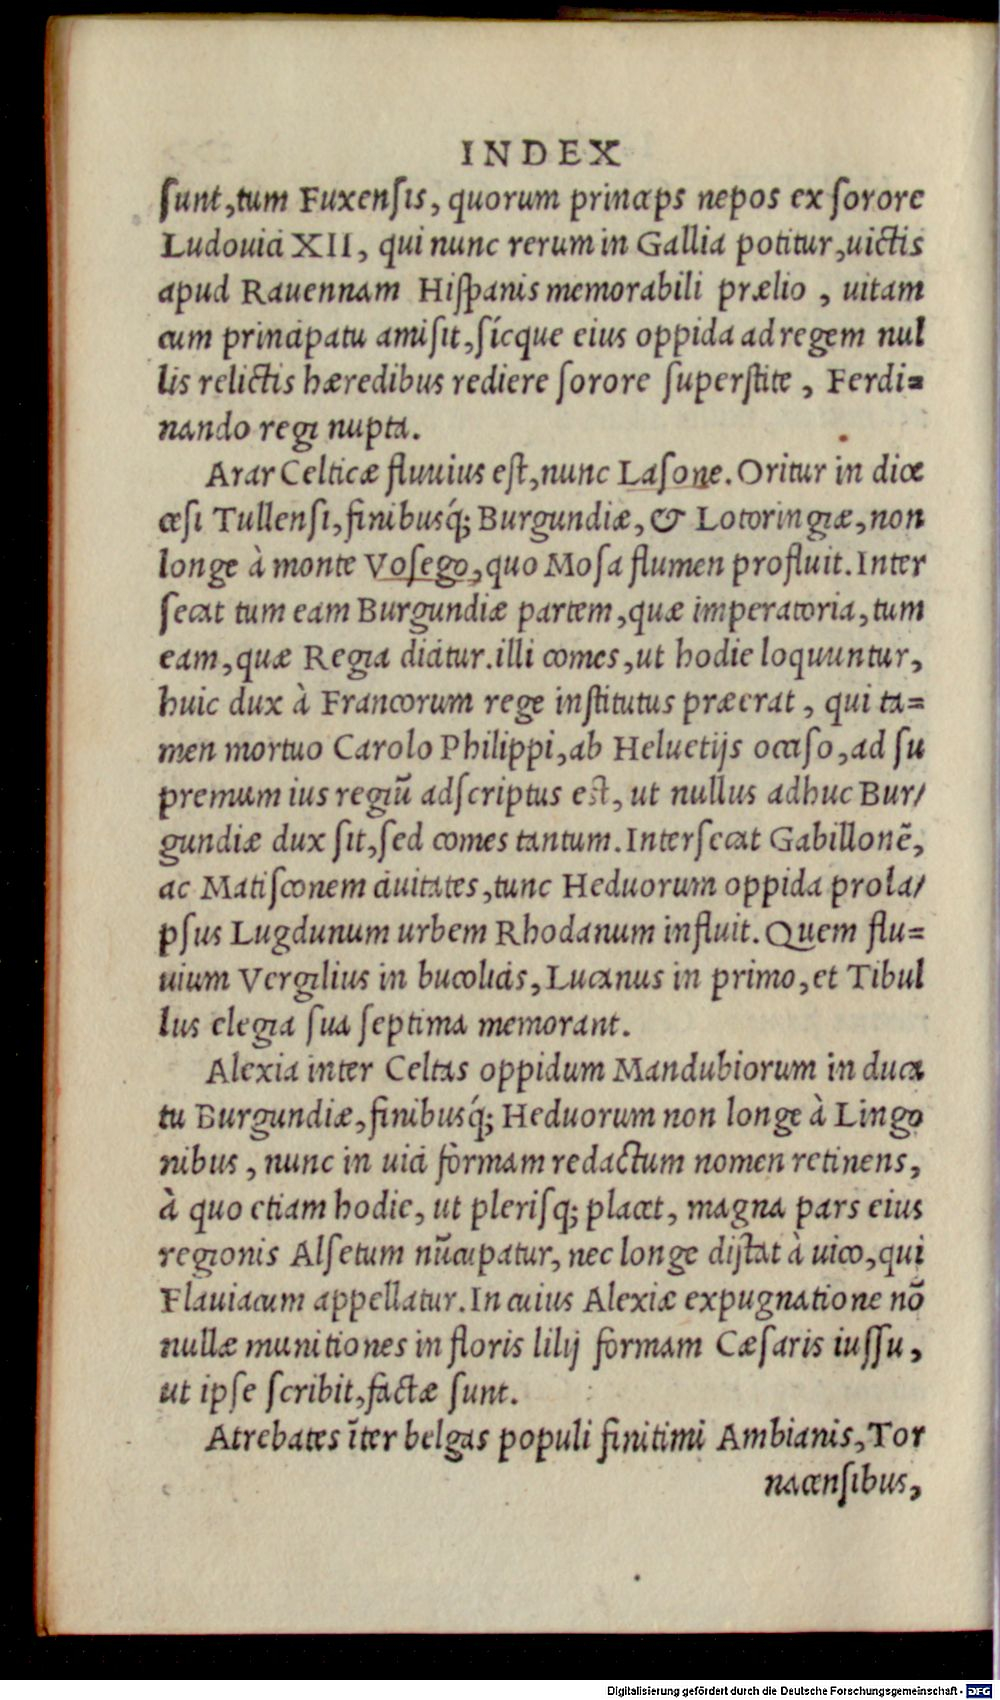 INDEX
sunt, tum Fuxensis, quorum princeps nepos ex sorore
Ludouici XII, qui nunc rerum in Gallia potitur, uictis
apud Rauennam Hispanis memorabili prælio, uitam
cum principatu amisit, sícque eius oppida ad regem nul
lis relictis hæredibus rediere sorore superstite, Ferdi=
nando regi nupta.
Arar Celticæ fluuius est, nunc Lasone. Oritur in diœ
cesi Tullensi, finibusq́; Burgundiæ, & Lotoringiæ, non
longe à monte Vosego, quo Mosa flumen profluit. Inter
secat tum eam Burgundiæ partem, quæ imperatoria, tum
eam, quæ Regia dicitur. illi comes, ut hodie loquuntur,
huic dux à Francorum rege institutus præerat, qui ta=
men mortuo Carolo Philippi, ab Heluetijs occiso, ad su
premum ius regiū adscriptus est, ut nullus adhuc Bur/
gundiæ dux sit, sed comes tantum. Intersecat Gabillonē,
ac Matisconem ciuitates, tunc Heduorum oppida prola/
psus Lugdunum urbem Rhodanum influit. Quem flu=
uium Vergilius in bucolicis, Lucanus in primo, et Tibul
lus elegia sua septima memorant.
Alexia inter Celtas oppidum Mandubiorum in duca
tu Burgundiæ, finibusq́; Heduorum non longe à Lingo
nibus, nunc in uici formam redactum nomen retinens,
à quo etiam hodie, ut plerisq; placet, magna pars eius
regionis Alsetum nūcupatur, nec longe distat à uico, qui
Flauiacum appellatur. In cuius Alexiæ expugnatione nō
nullæ munitiones in floris lilij formam Cæsaris iussu,
ut ipse scribit, factæ sunt.
Atrebates īter belgas populi finitimi Ambianis, Tor
nacensibus,
Digitalisierung gefördert durch die Deutsche Forschungsgemeinschaft - DFG